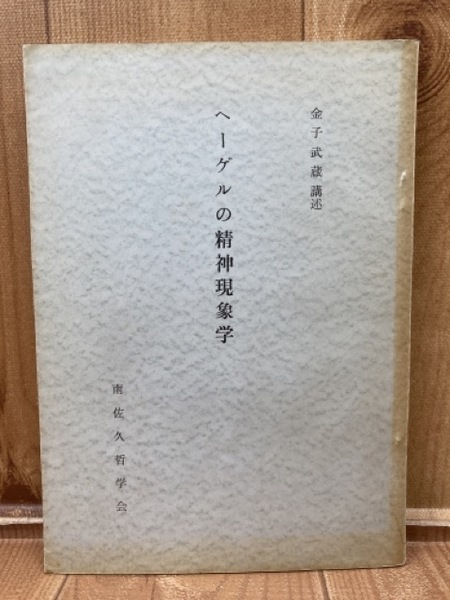 金子武蔵講述
ヘーゲルの精神現象学
南佐久哲学会